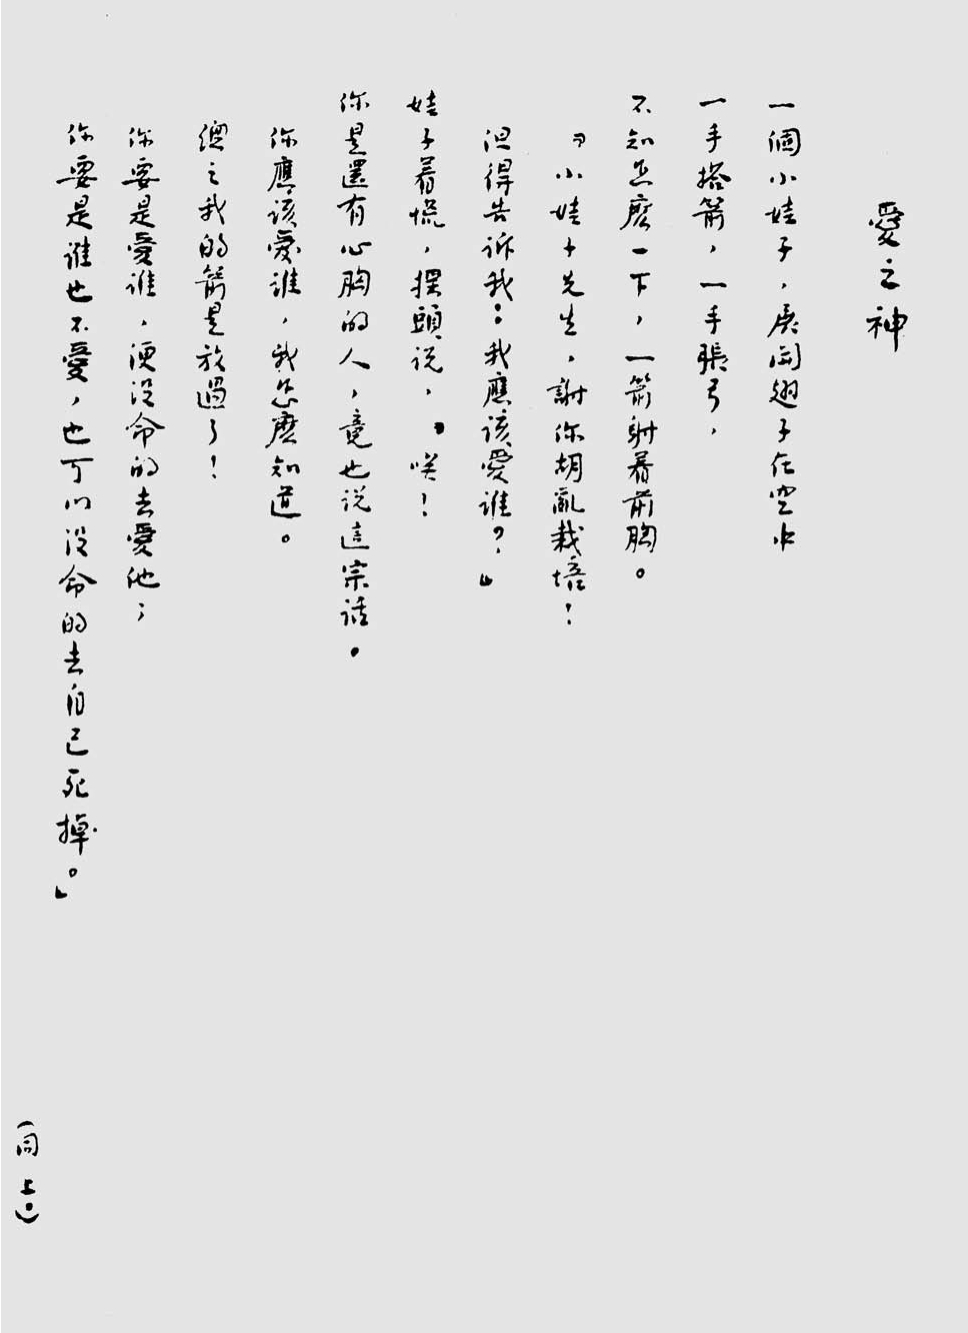 愛之神
一個小娃子，展開翅子在空中
一手搭箭，一手張弓，
不知怎麽一下，一箭射着前胸。
『小娃子先生，謝你胡亂栽培！
但得告訴我：我應該愛誰？』
娃子着慌，搖頭說，『唉！
你是還有心胸的人，竟也說這宗話。
你應該愛誰，我怎麽知道。
總之我的箭是放過了！
你要是愛誰，便沒命的去愛他；
你要是誰也不愛，也可以沒命的去自己死掉。』
（同上。）